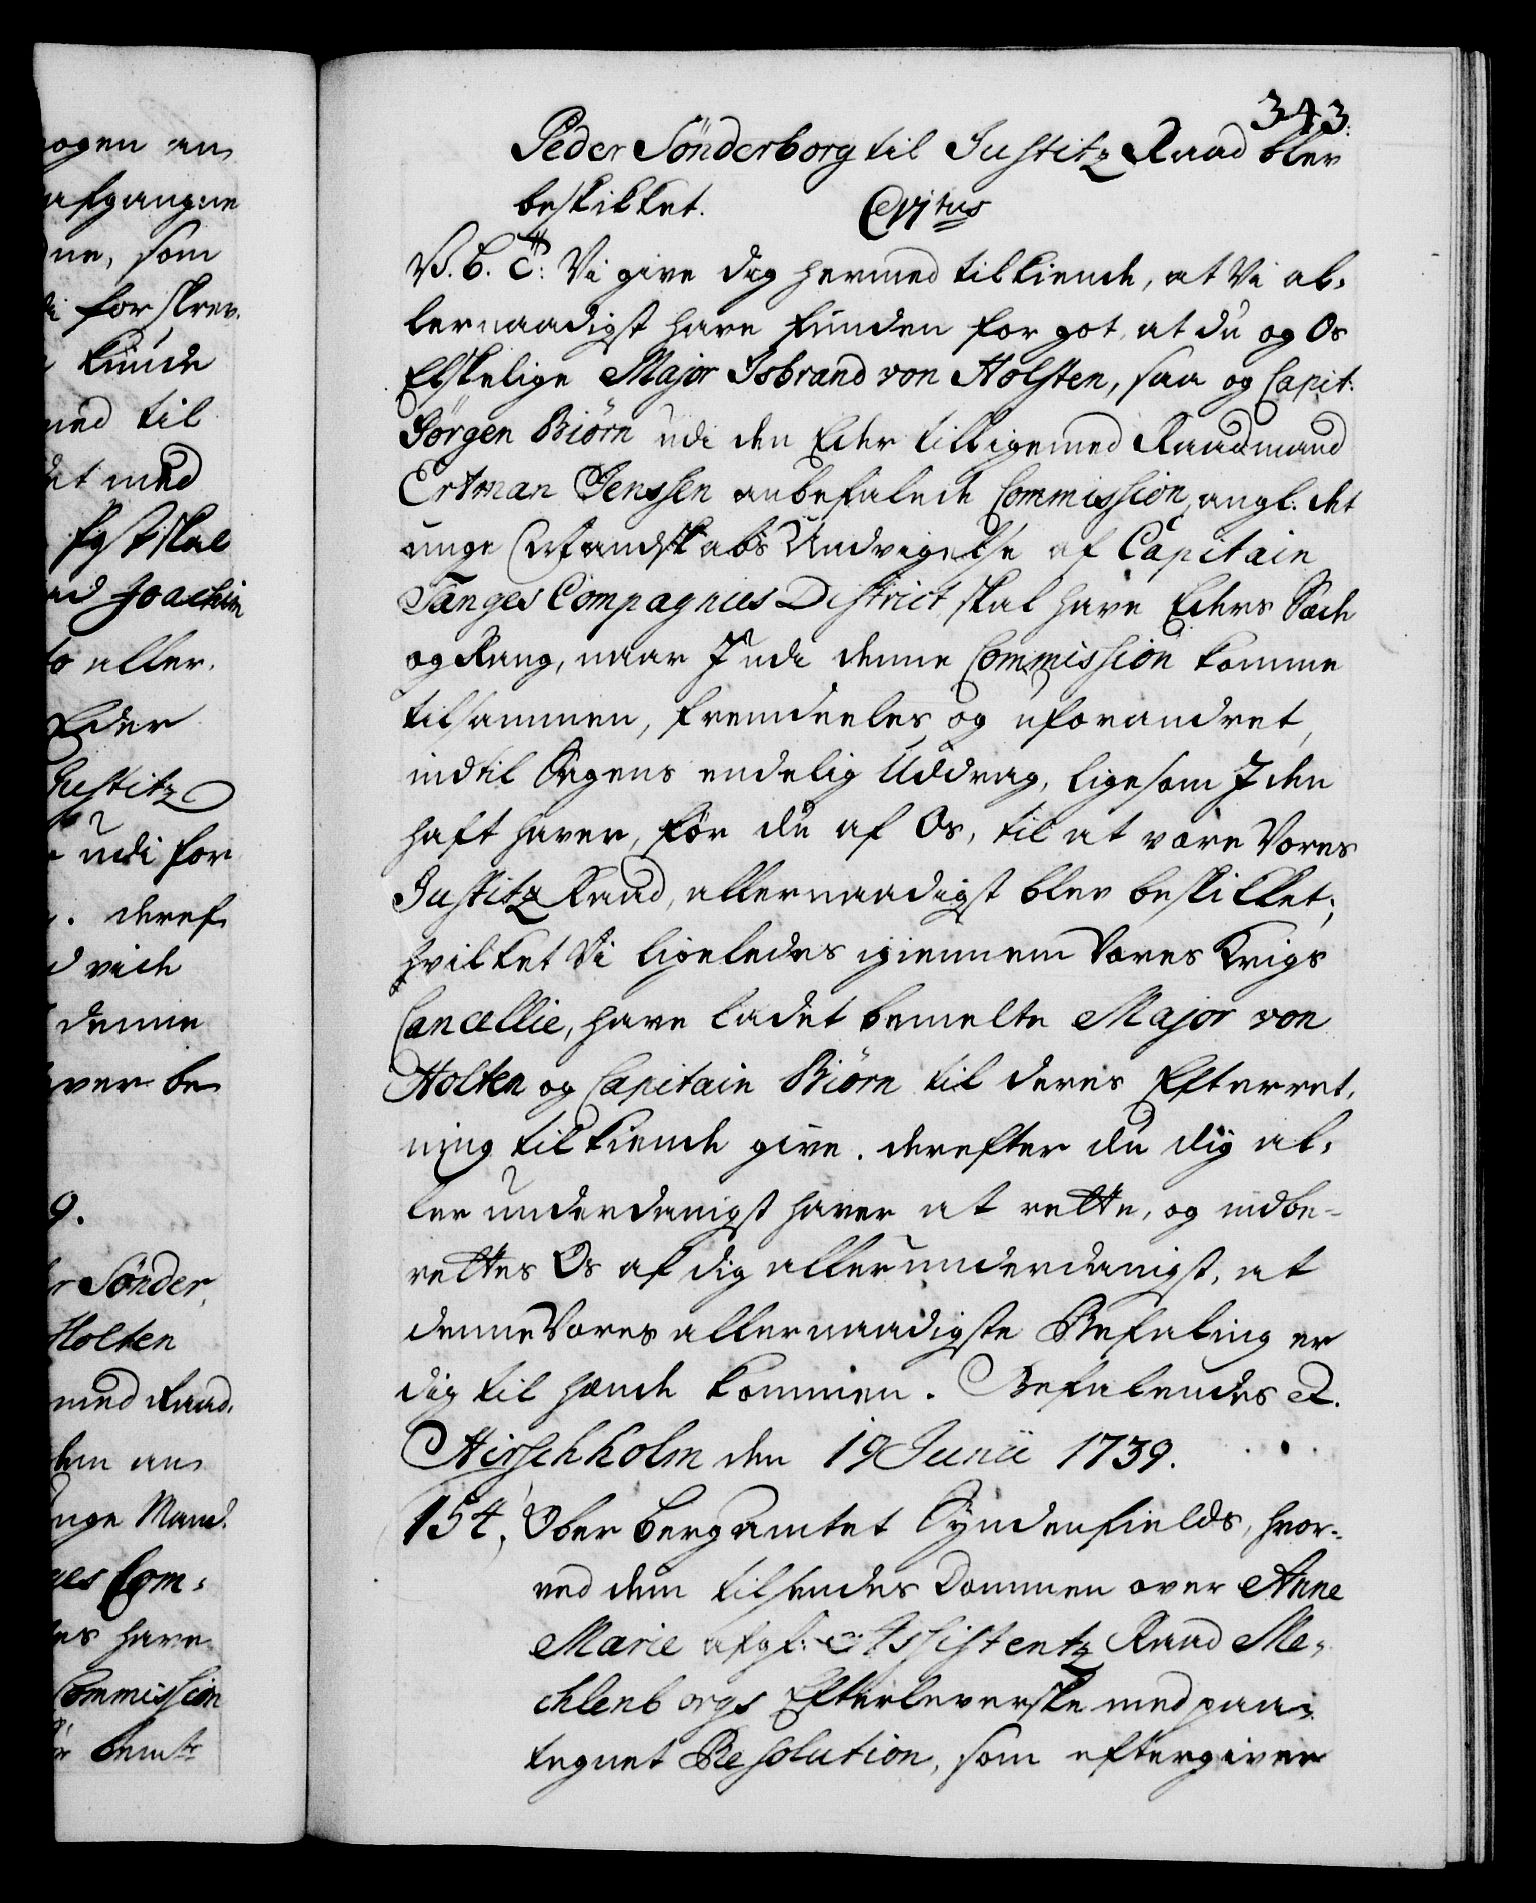 343.
Peder Sönderborg til Justitz Raad blev
beskikket.
V. G. T: Vi give dig hermed tilkiende, at Vi al-
lernaadigst have funden for got, at du og Os
Elskelige Major Isbrand von Holsten, saa og Capit:
Jörgen Biörn udi den Eder tilligemed Raadmand
Ertman Jenssen anbefalede Commission, angl. det
unge Mandskabs Undvigelse af Capitain
Tanges Compagnies District, skal have Eders Sæde
og Rang, naar I udi denne Commission komme
tilsammen, fremdeeles og uforandret,
indtil Sagens endelig Uddrag, ligesom I den
haft haver, för du af Os, til at være Vores
Justitz Raad, allernaadigst blev beskikket;
hvilket Vi ligeledes igiennem Vores Krigs
Cancellie, have ladet bemelte Major von
Holten og Capitain Biörn til deres Efterret-
ning tilkiende give. derefter du dig al-
lerunderdanigst haver at rette, og indbe-
rettes Os af dig allerunderdanigst, at
denne Vores allernaadigste Befaling er
dig til hænde kommen. Befalendes &.
Hirschholm den 19 Junii 1739.
154, Ober Bergamtet Syndenfields, hvor-
ved dem tilsendes Dommen over Anne
Marie afgl: Assistentz Raad Me-
chlenborgs Efterleverske med paa-
tegnet Resolution, som eftergiver